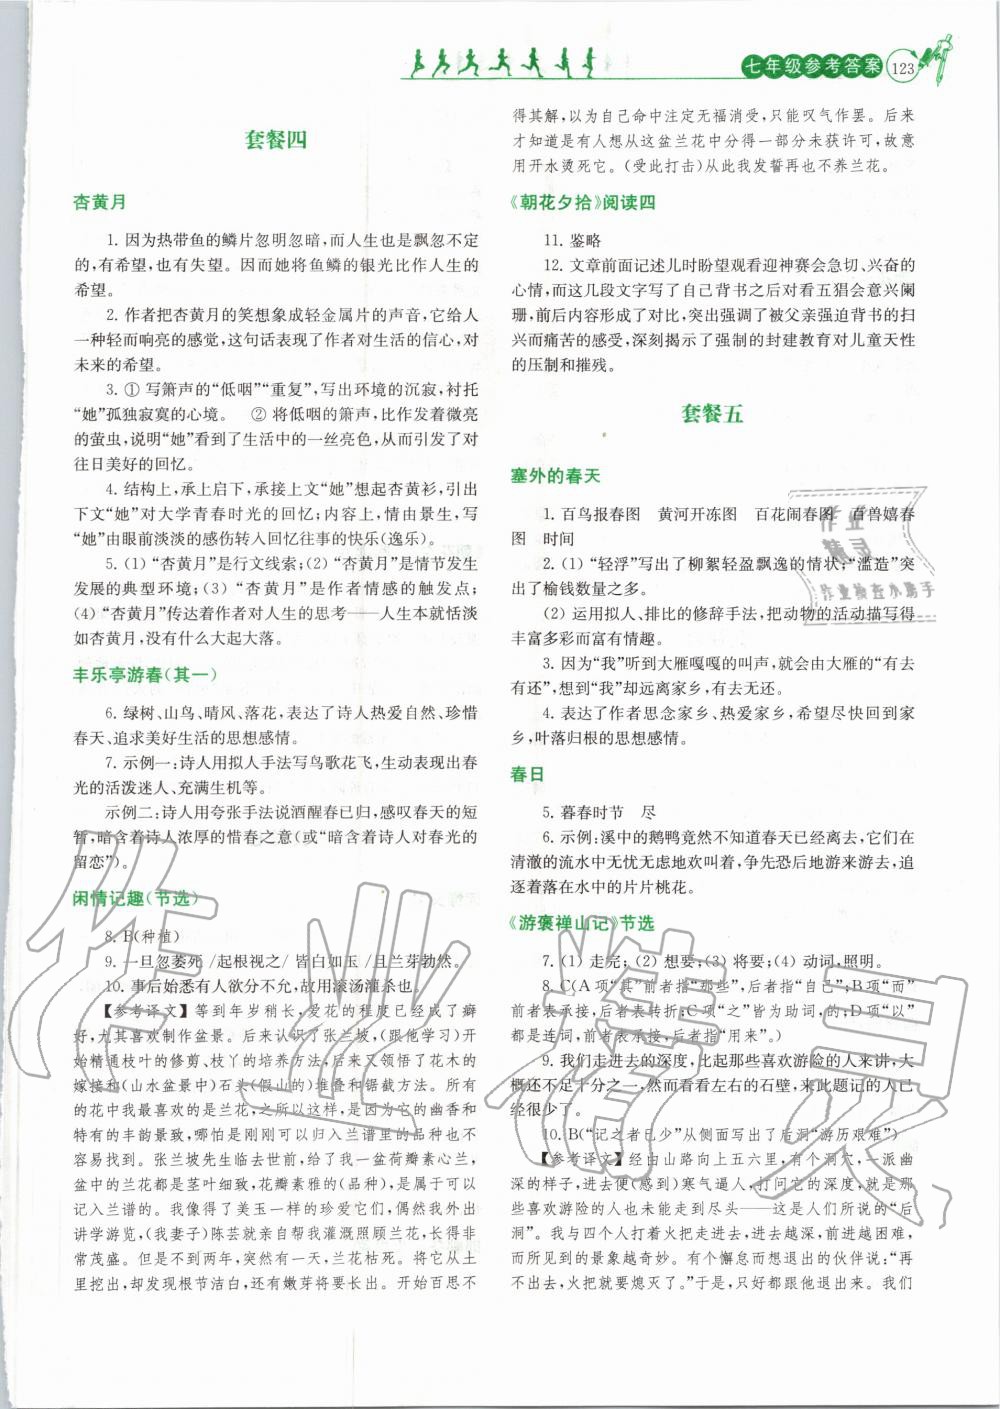 七年级参考答案 123
套餐四
杏黄月
1. 因为热带鱼的鳞片忽明忽暗,而人生也是飘忽不定
的,有希望,也有失望。因而她将鱼鳞的银光比作人生的
希望。
2. 作者把杏黄月的笑想象成轻金属片的声音,它给人
一种轻而响亮的感觉,这句话表现了作者对生活的信心,对
未来的希望。
3. ① 写箫声的“低咽”“重复”,写出环境的沉寂,衬托
“她”孤独寂寞的心境。 ② 将低咽的箫声,比作发着微亮
的萤虫,说明“她”看到了生活中的一丝亮色,从而引发了对
往日美好的回忆。
4. 结构上,承上启下,承接上文“她”想起杏黄衫,引出
下文“她”对大学青春时光的回忆;内容上,情由景生,写
“她”由眼前淡淡的感伤转入回忆往事的快乐(逸乐)。
5. (1) “杏黄月”是行文线索;(2) “杏黄月”是情节发生
发展的典型环境;(3) “杏黄月”是作者情感的触发点;
(4) “杏黄月”传达着作者对人生的思考——人生本就恬淡
如杏黄月,没有什么大起大落。
丰乐亭游春(其一)
6. 绿树、山鸟、晴风、落花,表达了诗人热爱自然、珍惜
春天、追求美好生活的思想感情。
7. 示例一:诗人用拟人手法写鸟歌花飞,生动表现出春
光的活泼迷人、充满生机等。
示例二:诗人用夸张手法说酒醒春已归,感叹春天的短
暂,暗含着诗人浓厚的惜春之意(或“暗含着诗人对春光的
留恋”)。
闲情记趣(节选)
8. B(种植)
9. 一旦忽萎死/起根视之/皆白如玉/且兰芽勃然。
10. 事后始悉有人欲分不允,故用滚汤灌杀也。
【参考译文】等到年岁稍长,爱花的程度已经成了癖
好,尤其喜欢制作盆景。后来认识了张兰坡,(跟他学习)开
始精通枝叶的修剪、枝丫的培养方法,后来又领悟了花木的
嫁接和(山水盆景中)石头(假山的)堆叠和锯截方法。所有
的花中我最喜欢的是兰花,之所以这样,是因为它的幽香和
特有的丰韵景致,哪怕是刚刚可以归入兰谱里的品种也不
容易找到。张兰坡先生临去世前,给了我一盆荷瓣素心兰,
盆中的兰花都是茎叶细致,花瓣素雅的(品种),是可以
记入兰谱的。我像得了美玉一样的珍爱它们,偶然我外出
讲学游览,(我妻子)陈芸就亲自帮我灌溉照顾兰花,长得非
常茂盛。但是不到两年,突然有一天,兰花枯死。将它从土
里挖出,却发现根节洁白,还有嫩芽将要长出。开始百思不
得其解,以为自己命中注定无福消受,只能叹气作罢。后来
才知道是有人想从这盆兰花中分得一部分未获许可,故意
用开水烫死它。(受此打击)从此我发誓再也不养兰花。
《朝花夕拾》阅读四
11. 鉴略
12. 文章前面记述儿时盼望观看迎神赛会急切、兴奋的
心情,而这几段文字写了自己背书之后对看五猖会意兴阑
珊,前后内容形成了对比,突出强调了被父亲强迫背书的扫
兴而痛苦的感受,深刻揭示了强制的封建教育对儿童天性
的压制和摧残。
套餐五
塞外的春天
1. 百鸟报春图 黄河开冻图 百花闹春图 百兽嬉春
图 时间
2. (1) “轻浮”写出了柳絮轻盈飘逸的情状;“滥造”突
出了榆钱数量之多。
(2) 运用拟人、排比的修辞手法,把动物的活动描写得
丰富多彩而富有情趣。
3. 因为“我”听到大雁嘎嘎的叫声,就会由大雁的“有去
有还”,想到“我”却远离家乡,有去无还。
4. 表达了作者思念家乡、热爱家乡,希望尽快回到家
乡,叶落归根的思想感情。
春日
5. 暮春时节 尽
6. 示例:溪中的鹅鸭竟然不知道春天已经离去,它们在
清澈的流水中无忧无虑地欢叫着,争先恐后地游来游去,追
逐着落在水中的片片桃花。
《游褒禅山记》节选
7. (1) 走完;(2) 想要;(3) 将要;(4) 动词,照明。
8. C(A项“其”前者指“那些”,后者指“自己”;B项“而”
前者表承接,后者表转折;C项“之”皆为助词,的;D项“以”
都是连词,前者表承接,后者指“用来”。)
9. 我们走进去的深度,比起那些喜欢游险的人来讲,大
概还不足十分之一,然而看看左右的石壁,来此题记的人已
经很少了。
10. B(“记之者已少”从侧面写出了后洞“游历艰难”)
【参考译文】经由山路向上五六里,有个洞穴,一派幽
深的样子,进去便(感到)寒气逼人,打问它的深度,就是那
些喜欢游险的人也未能走到尽头——这是人们所说的“后
洞”。我与四个人打着火把走进去,进去越深,前进越困难,
而所见到的景象越奇妙。有个懈怠而想退出的伙伴说:“再
不出去,火把就要熄灭了。”于是,只好都跟他退出来。我们
作业
精灵
作业检查小助手
作业精灵